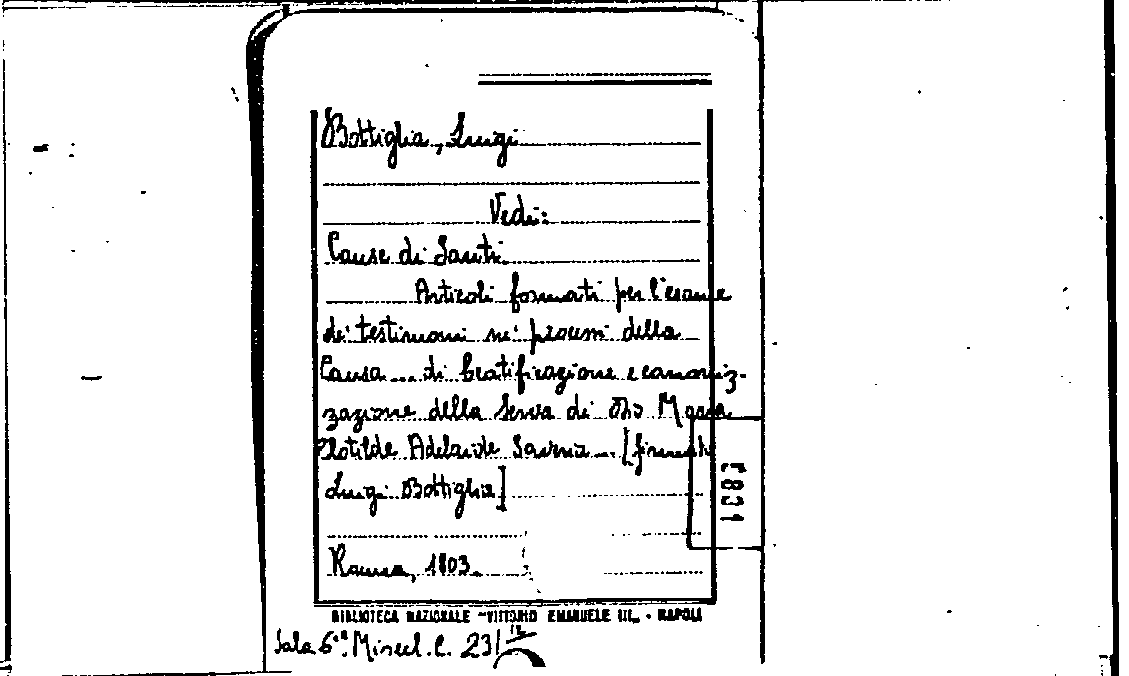 Bottiglia, Luigi
Vedi:
Cause di Santi.
Articoli formati per l'esame
dei testimoni ne' processi della
Causa ... di beatificazione e canoniz-
zazione della Serva di Dio Maria
Clotilde Adelaide Saveria ... [firmato
Luigi Bottiglia]
Roma, 1803.
BIBLIOTECA NAZIONALE - VITTORIO EMANUELE III. - NAPOLI
Sala 6ª. Miscel. C. 23/